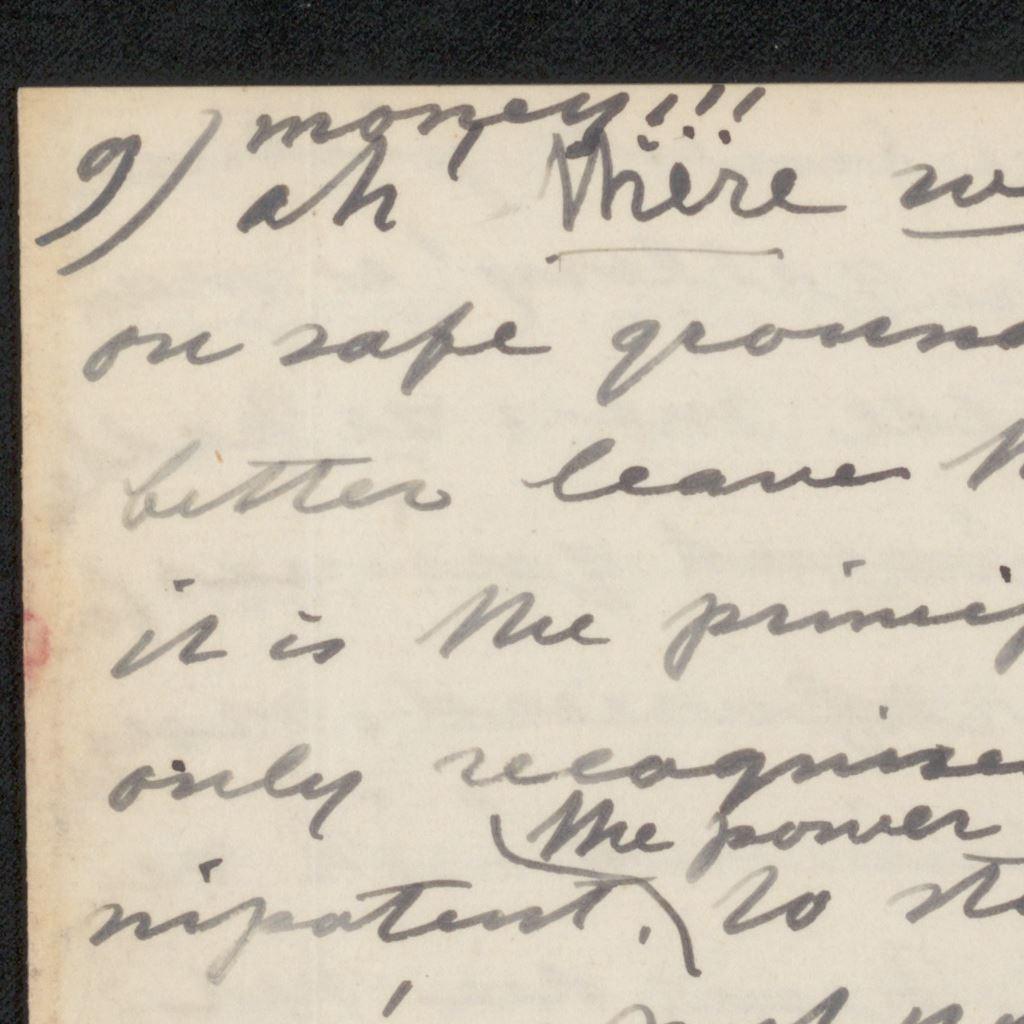 9) money!!!
ah there we
on safe ground
better leave
it is the princip
only recognise
the power
nipotent. to st